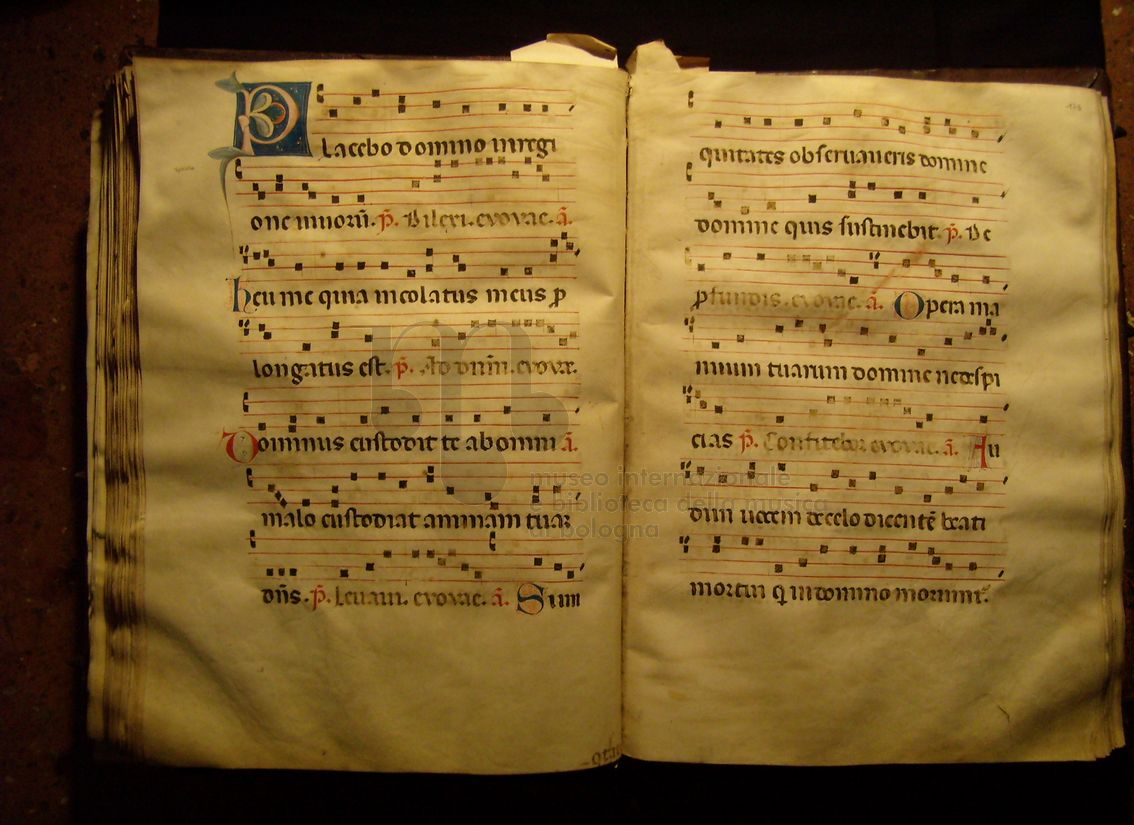 Placebo domino in regi
one uiuorū. p̄. Dilexi. evovae. ā.
Heu me quia incolatus meus ꝓ
longatus est. p̄. Ad dnm̄. evovae.
Dominus custodit te ab omni ā.
malo custodiat animam tuaz
dn̄s. p̄. Leuaui. evovae. ā. Si ini
quitates obseruaueris domine
domine quis sustinebit. p̄. De
ꝓfundis. evovae. ā. Opera ma
nuum tuarum domine ne despi
cias p̄. Confitebor evovae. ā. Au
diui uocem de celo dicentē beati
mortui q̄ in domino moriunt.
museo internazionale
e biblioteca della musica
di bologna